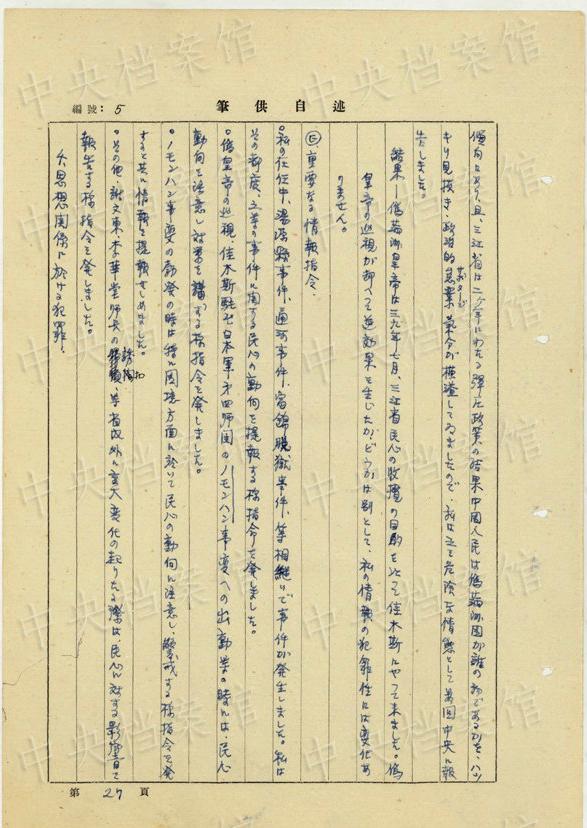 編號：5
筆供自述
傾向にあり、且、三江省は二ヶ年にわたる弾圧政策の結果中国人民は偽満洲国が誰の物であるかを、ハッ
キリ見抜き、政治的気分が横溢してゐましたので、私は之を危険な情態として偽国中央に報
告しました。
結果ー偽満洲皇帝は三九年七月、三江省民心の收攬の目的を以て佳木斯にやって来ました。偽
皇帝の巡視が却へって逆効果を生じたか、どうかは別として、私の情報の犯罪性には変化あ
りません。
重要なる情報指令、
。私の在任中、湯原縣事件、通河事件、富錦脱獄事件、等相継いで事件が発生しました。私は
その都度、之等の事件に関する民心の動向を提報する様指令を発しました。
。偽皇帝の巡視、佳木斯駐屯日本軍第四師団のノモンハン事変への出動等の時には、民心
動向を注意し対策を講ずる様指令を発しました。
。ノモンハン事変の勃発の時は特に国境方面に於いて民心の動向に注意し、警戒する様指令を発
すると共に情報を提報せしめました。
。その他、謝文東、李華堂師長の誘降、等省内外に重大変化の起りたる際は、民心に対する影響を
報告する様指令を発しました。
思想関係に於ける犯罪、
第27頁
中央档案馆